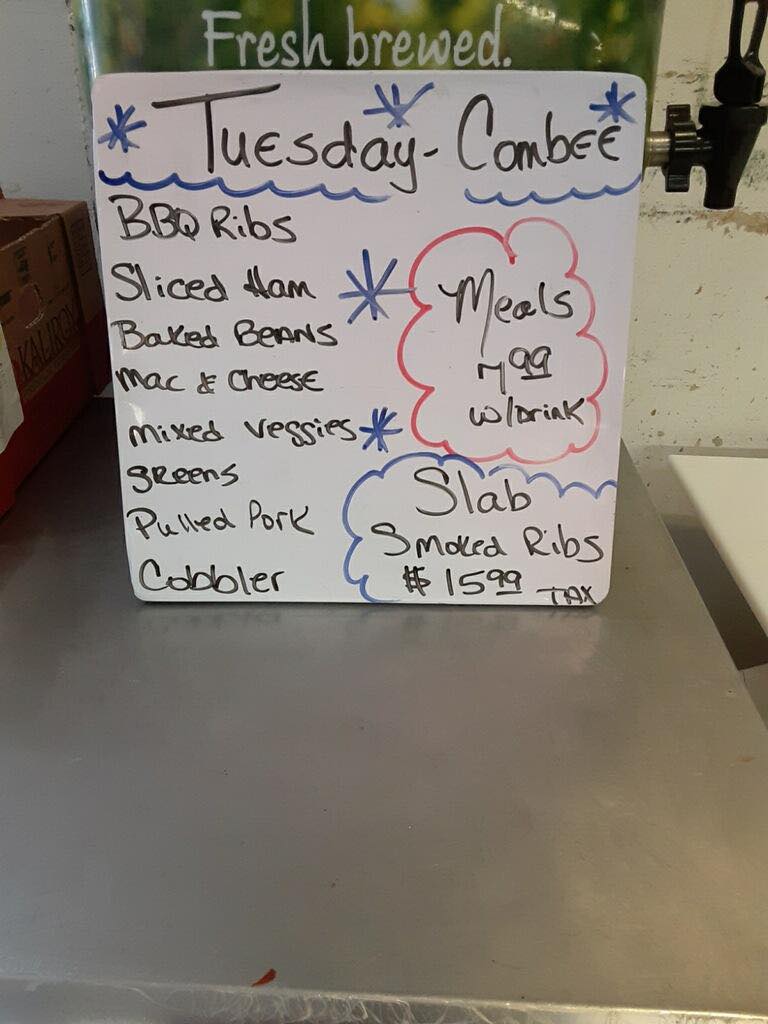 Fresh brewed.
Tuesday - Combee
BBQ Ribs
Sliced Ham
Baked Beans
Mac & Cheese
mixed veggies
greens
Pulled Pork
Cobbler
Meals
7.99
w/Drink
Slab
Smoked Ribs
$15.99 TAX